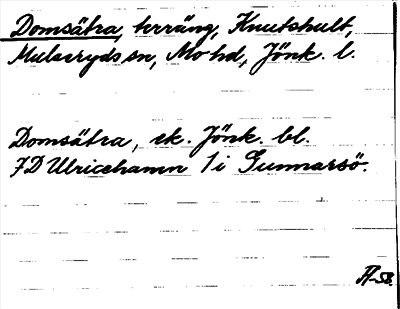 Domsätra, terräng, Knutshult,
Mulseryds sn, Mo hd, Jönk. l.
Domsätra, ek. Jönk. bl.
7D Ulricehamn 1 i Gunnarsö.